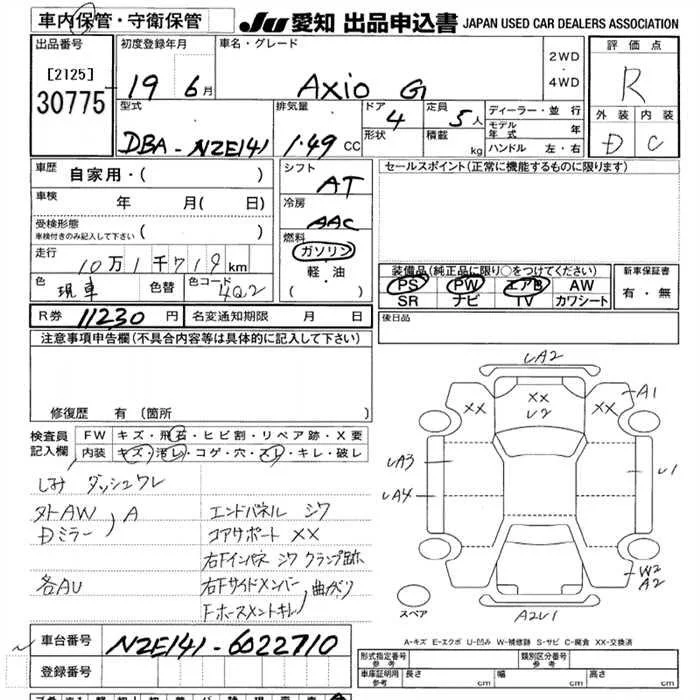 車内保管・守衛保管
JU 愛知 出品申込書 JAPAN USED CAR DEALERS ASSOCIATION
出品番号
[2125]
30775
初度登録年月
19 6月
車名・グレード
AXio G
2WD
・
4WD
評価点
R
外装 内装
D C
型式
DBA-NZE141
排気量
1.49 CC
ドア
4
形状
定員
5人
積載
kg
ディーラー・並行
モデル年式 年
ハンドル 左・右
車歴
自家用・( )
車検
年 月( 日)
受検形態
車検付きのみ記入して下さい
( )
走行
10万1千719km
色
現車
色替
色コード
4Q2
シフト
AT
冷房
AAC
燃料
ガソリン
・
軽・油
( )
セールスポイント(正常に機能するものに限ります)
装備品(純正品に限り○をつけてください)
PS PW エアB AW
SR ナビ TV カワシート
新車保証書
有・無
R券 11230 円
名変通知期限 月 日
後日品
注意事項申告欄(不具合内容等は具体的に記入して下さい)
修復歴 有 (箇所 )
検査員
記入欄
FW キズ・飛石・ヒビ割・リペア跡・X要
内装 キズ・汚レ・コゲ・穴・スレ・キレ・破レ
しみ ダッシュワレ
外AW
Dミラー
A
各AU
エンドパネル シワ
コアサポート XX
右Fインパネ シワ クランプ跡
右Fサイドメンバー 曲がり
Fホースメントキレ
UA2
XX
XX
U2
XX
A1
UA3
UA4
U1
W2
A2
スペア
A2U1
A-キズ E-エクボ U-凹み W-補修跡 S-サビ C-腐食 XX-交換済
車台番号
NZE141-6022710
登録番号
形式指定番号
参考
類別区分番号
参考
車庫証明用
参考
長さ cm
幅 cm
高さ cm